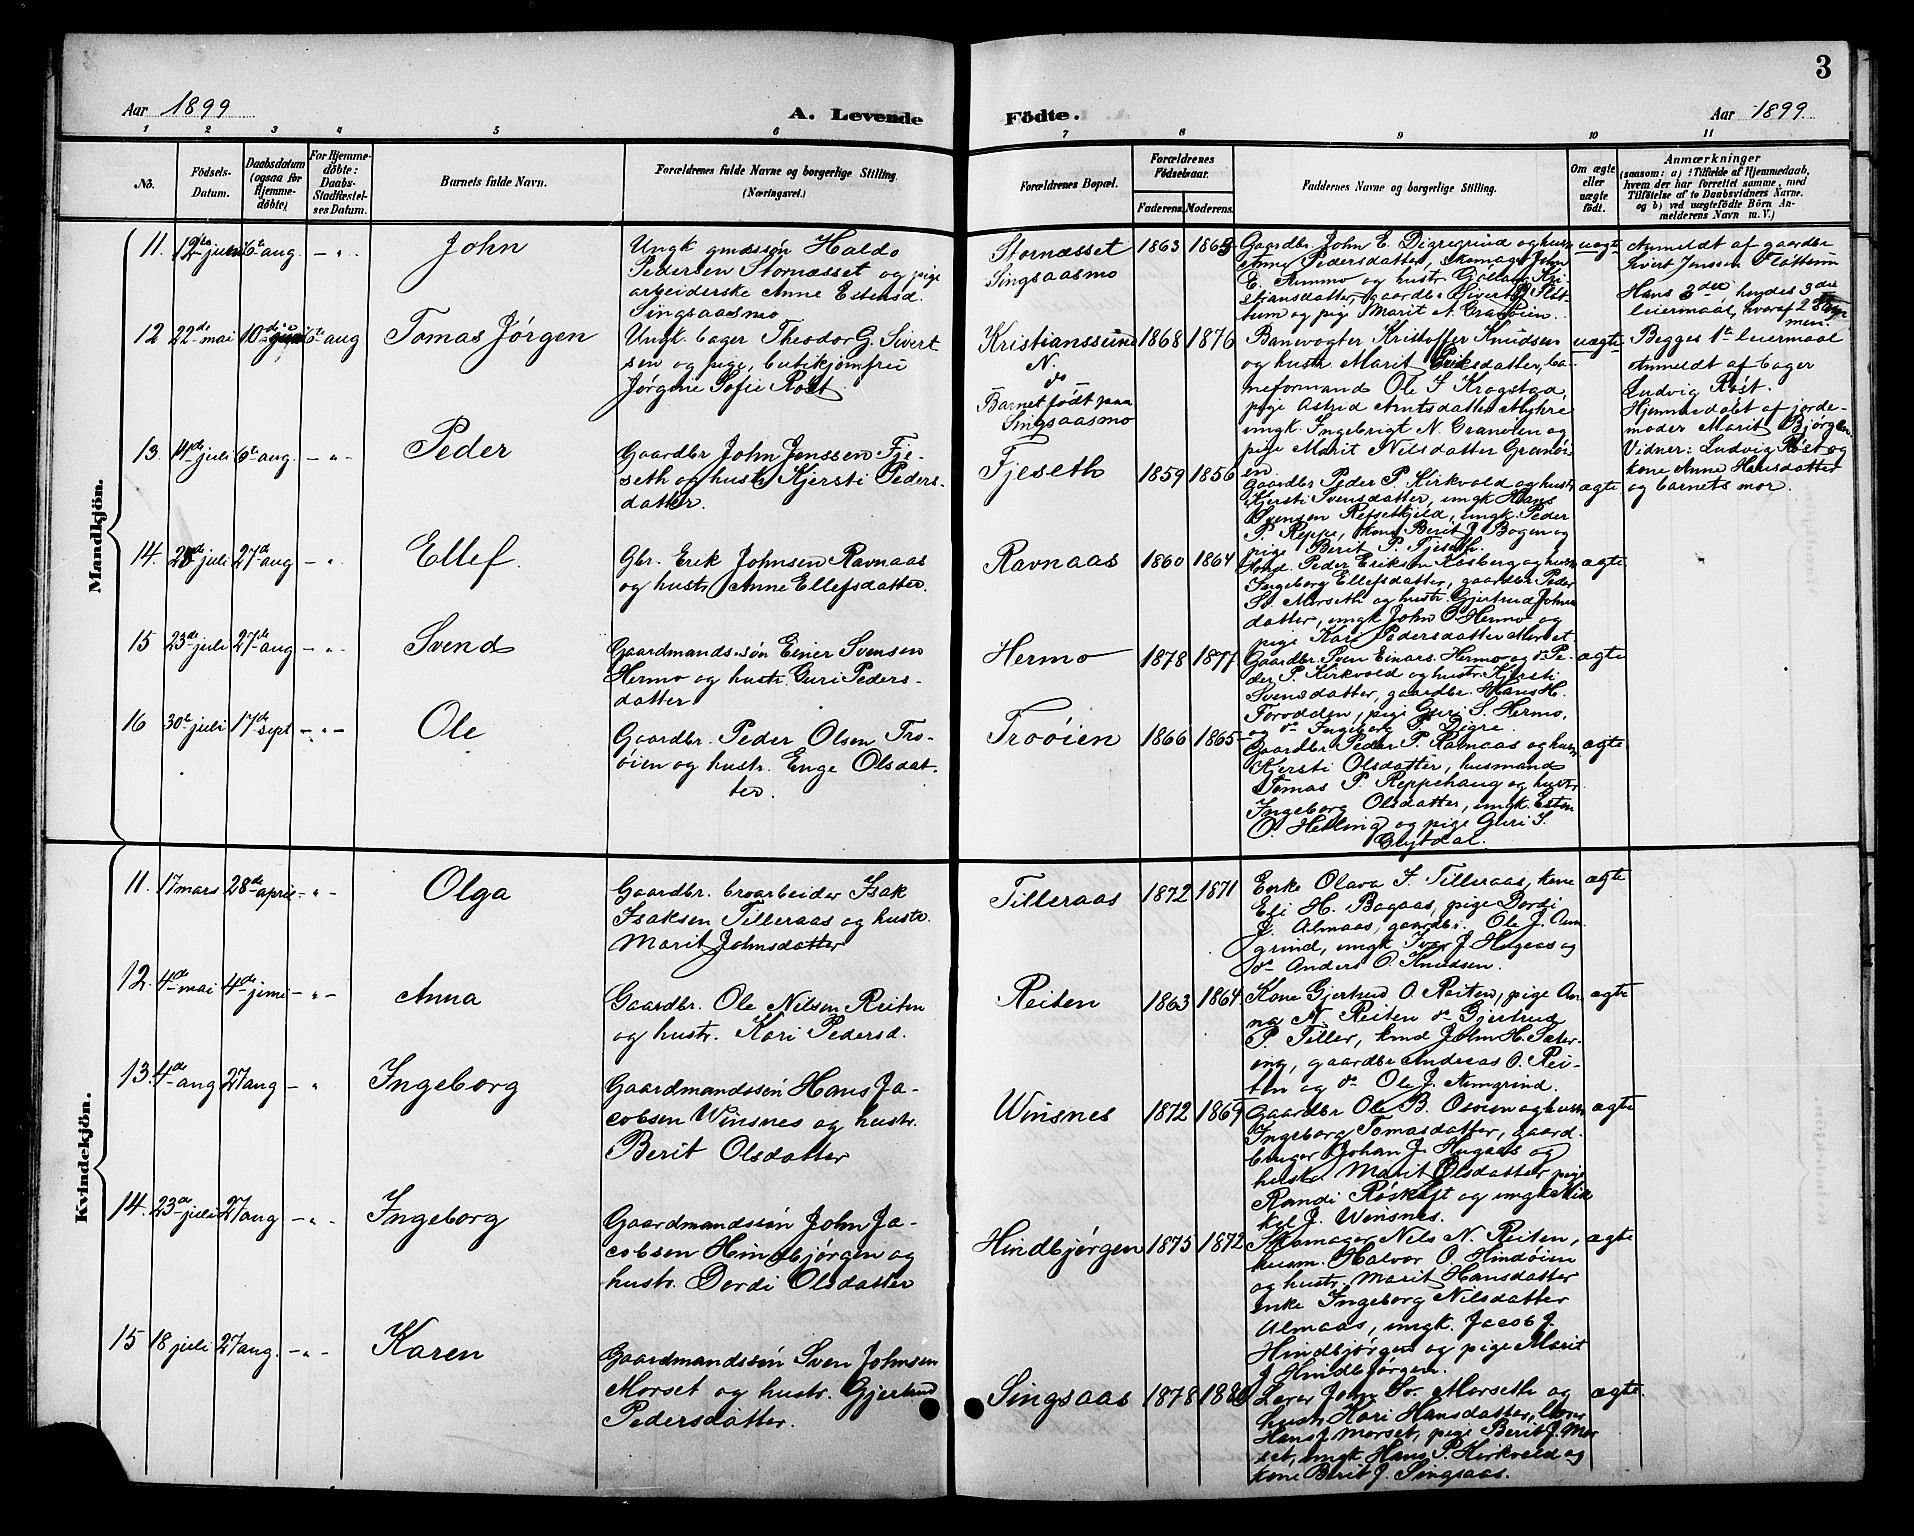 3
Aar 1899
A. Levende
Födte.
Aar 1899
1 2 3 4 5 6 7 8 9 10 11
No.
Födsels-
Datum.
Daabsdatum
(ogsaa for
Hjemme-
döbte)
For Hjemme-
döbte:
Daabs-
Stadfæstel-
ses Datum.
Barnets fulde Navn.
Forældrenes fulde Navne og borgerlige Stilling.
(Næringsvei.)
Forældrenes Bopæl.
Forældrenes
Födselsaar.
Faderens. Moderens.
Faddernes Navne og borgerlige Stilling.
Om ægte
eller
uægte
födt.
Anmærkninger
(saasom: a) i Tilfælde af Hjemmedaab,
hvem der har forrettet samme, med
Tilföielse af to Daabsvidners Navne.
og b) ved uægtefödte Börn An-
melderens Navn m. V.)
Mandkjön.
11. 12te juni 6te aug. - " -
John
Ungk gmdssøn Haldo
Pedersen Stornæsset og pige
arbeiderske Anne Estensd.
Singsaasmo
Stornæsset
Singsaasmo
1863
Gaardbr. John E. Digregrind og hustr
Anne Pedersdatter, skomager John
E. Aunmo og hustr
stjansdatter, gaardbr Sivert J. Flot-
tum og pig Marit N. Granøien.
uægte
Anmeldt af gaardbr
Sivert Jenssen Flottum
Hans 3die hendes 3die
leiermaal, hvoraf 2 sam
men.
12 22de mai 6te aug
Tomas Jørgen
Ungk. bager Theodor G. Sivert
sen og pige, butikjomfru
Jørgine Sofie Røst
Kristianssund
N.
do
Barnet født paa
Singsaasmo
1868 1876
Banevogter Kristoffer Knudsen
og hustr Marit Eriksdatter, ba-
neformand Ole I Kragstad,
pige Astrid Arntsdatter Myhre
ungk. Ingebrigt N. Granøien og
pige Marit Nilsdatter Granøi-
en
uægte
Begges 1te leiermaal
Anmeldt af bager
Ludvig Røst.
Hjemmedøbt af jorde-
moder Marit Bjørgen.
Vidner: Ludvig Røst og
kone Anne Hansdatter
og barnets mor.
13. 14de juli 6te aug. - " -
Peder
Gaardbr John Jenssen Fje-
seth og hustr Kjersti Peders-
datter.
Fjeseth
1859 1856
Gaardbr Peder P. Kirkvold og hustr
Kjersti Svensdatter, ungk Hans
Svensen Refsethjeld, ungk. Peder
P. Reppe, kone Berit J. Bogen og
pige Berit P. Fjeseth.
ægte
14. juli 27de aug - " -
Ellef
Gbr. Erik Johnsen Ravnaas
og hustr Anne Ellefsdatter.
Ravnaas
1860 1864
Peder Eriksen Kosberg og hustr
Ingeborg Ellefsdatter, gaardbr Peder
Sv. Morseth og hustr. Gjertrud Johns
datter, ungk John O Hermo og
pige Kari Pedersdatter Morset
ægte
15 23de juli 27de aug - " -
Svend
Gaardmandssøn Einer Svensen
Hermo og hustr. Guri Peders-
datter
Hermo
1878 1877
Gaardbr. Sven Einars. Hermo og do Pe-
der P. Kirkvold og hustr. Kjersti
Svensdatter, gaardbr. Hans H.
Forodden, pige Guri S. Hermo,
og do Ingeborg P. Digre.
ægte
16 30te juli 17de sept - " -
Ole
Gaardbr. Peder Olsen Tro-
øien og hustr. Enge Olsdat-
ter.
Troøien
1866 1865
Gaardbr Peder P. Ramaas og hustr
Kjersti Olsdatter, husmand
Tomas P. Reppehaug og hustr
Ingeborg Olsdatter, ungk. Esten
O. Helling og pige Guri I.
ægte
Kvindekjön.
11. 17 mars 28de april - " -
Olga
Gaardbr. broarbeider Isak
Isaksen Tilleraas og hustr.
Marit Johnsdatter
Tilleraas
1872 1871
Enke Olava I. Tilleraas, kone
Eli H. Bagaas, pige Dordi
J. Almaas, gaardbr. Ole J. Aun-
grind, ungk Ivar J. Hugaas og
do Anders O. Knudsen.
ægte
12. 4de mai 4de juni - " -
Anna
Gaardbr. Ole Nilsen Reiten
og hustr. Kari Pedersd.
Reiten
1863 1864
Kone Gjertrud O. Reiten, pige An-
na N. Reiten do Gjertrud
P. Tiller, kmd John H. Sæter-
eng, gaardbr Andreas O. Rei-
ten og do Ole J. Aungrind.
ægte
13. 4de aug 27 aug - "
Ingeborg
Gaardmandssøn Hans Ja-
cobsen Winsnes og hustr.
Berit Olsdatter
Winsnes
1872 1869
Gaardbr Ole B. Osøien og hustr
Ingeborg Tomasdatter, gaard-
bruger Johan J. Hugaas og
hustr Marit Olsdatter pige
Randi Røskaft og ungk Mik
kel J. Winsnes.
ægte
14. 23de juli 27 aug - " -
Ingeborg
Gaardmandssøn John Ja-
cobsen Hindbjørgen og
hustr. Dordi Olsdatter
Hindbjørgen
1875 1872
Skomager Nils N. Reiten,
husm. Halvor O. Hindøien
og hustr. Marit Hansdatter
enke Ingeborg Nilsdatter
Almaas, ungk. Jacob J.
Hindbjørgen og pige Marit
J Hindbjørgen.
ægte
15 18 juli 27 aug. - " -
Karen
Gaardmandssøn Sven Johnsen
Morset og hustr. Gjertrud
Pedersdatter.
Singsaas
1878 1880
Lærer John Sv. Morseth og
hustr Kari Hansdatter, lærer
Hans J Morset, pige Berit J. Mor
set, ungk Hans P. Kirkvold og
kone Berit J. Singsaas.
ægte.